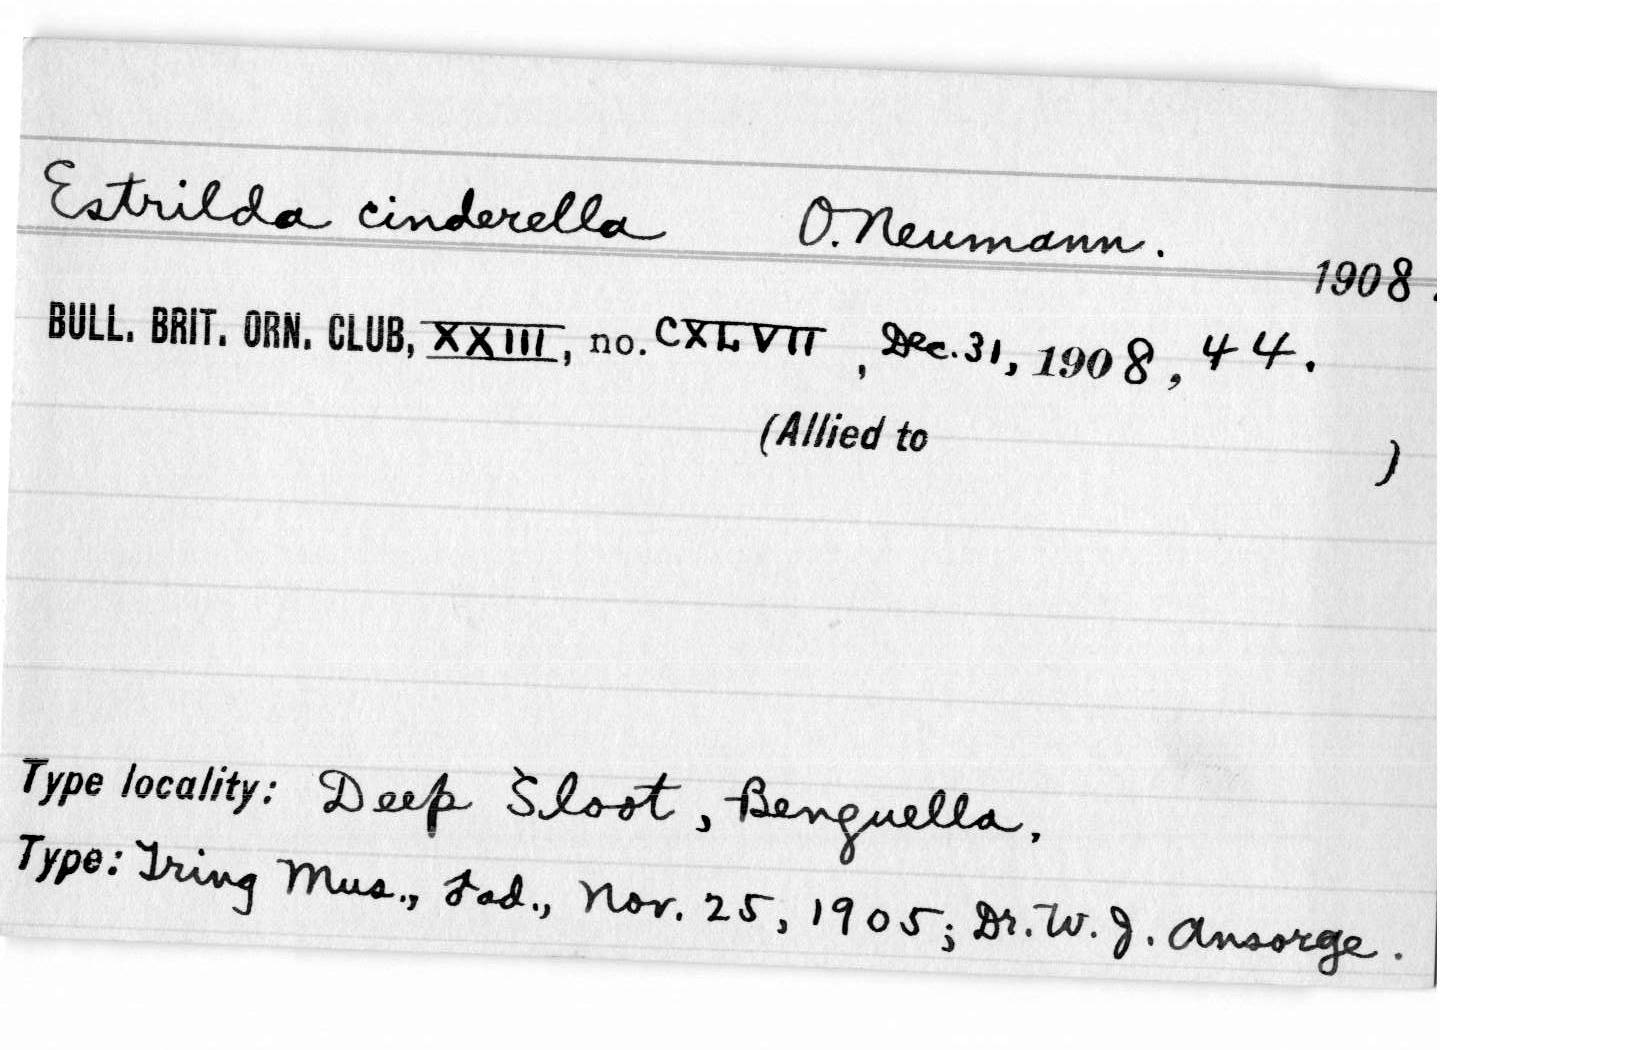 Estrilda cinderella O. Neumann.
1908.
BULL. BRIT. ORN. CLUB, XXIII, no. CXLVII, Dec. 31, 1908, 44.
(Allied to )
Type locality: Deep Sloot, Benguella.
Type: Tring Mus., ♂ad., Nov. 25, 1905; Dr. W. J. Ansorge.